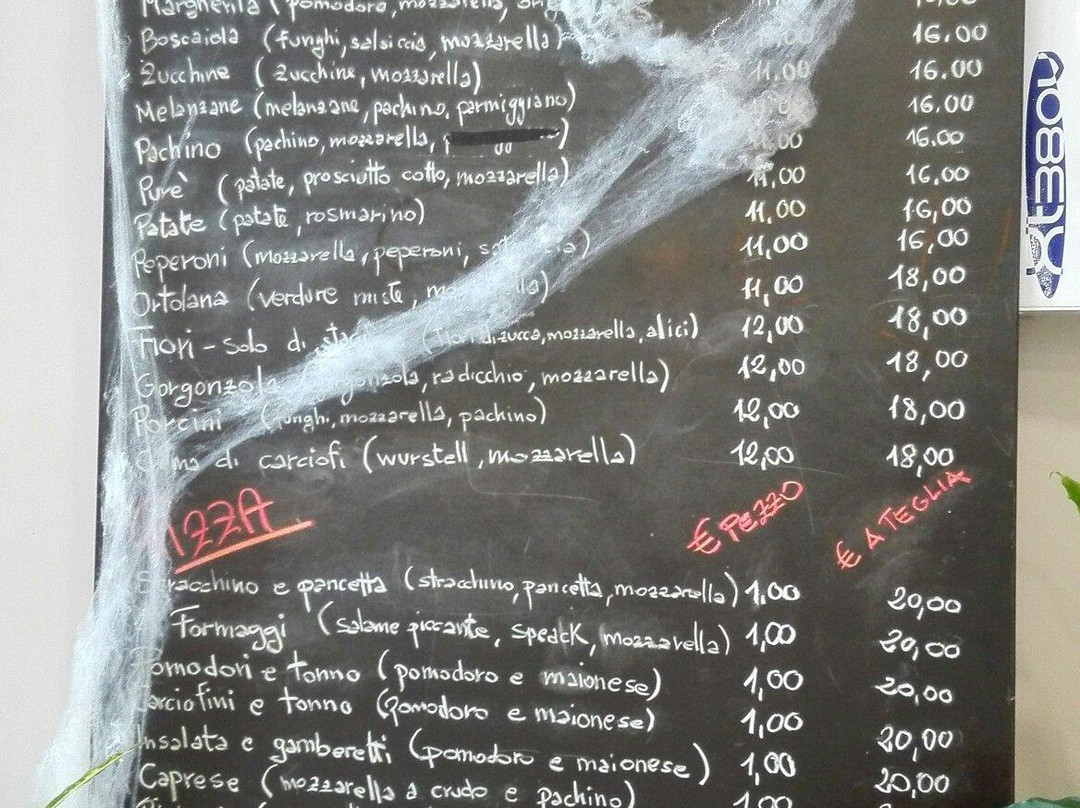 Margherita (pomodoro, mozzarella, 16.00
Boscaiola (funghi, salsiccia, mozzarella) 16.00
Zucchine (zucchine, mozzarella) 11.00 16.00
Melanzane (melanzane, pachino, parmiggiano) 16.00
Pachino (pachino, mozzarella, ) 16.00
Purè (patate, prosciutto cotto, mozzarella) 11,00 16,00
Patate (patate, rosmarino) 11,00 16,00
Peperoni (mozzarella, peperoni, 11,00 16,00
Ortolana (verdure miste, 11,00 18,00
Fiori - solo di (fiori di zucca, mozzarella, alici) 12,00 18,00
Gorgonzola (gorgonzola, radicchio, mozzarella) 12,00 18,00
Porcini (funghi, mozzarella, pachino) 12,00 18,00
di carciofi (wurstell, mozzarella) 12,00 18,00
IZZA € PEZZO € A TEGLIA
Stracchino e pancetta (stracchino, pancetta, mozzarella) 1,00 20,00
Formaggi (salame piccante, speack, mozzarella) 1,00 20,00
Pomodori e tonno (pomodoro e maionese) 1,00 20,00
Carciofini e tonno (pomodoro e maionese) 1,00 20,00
Insalata e gamberetti (pomodoro e maionese) 1,00 20,00
Caprese (mozzarella a crudo e pachino) 1,00